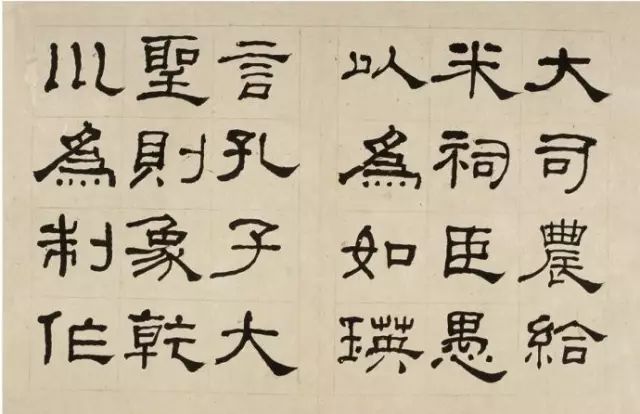 大司農給
米祠臣愚
以為如瑛
言孔子大
聖則象乾
川為制作